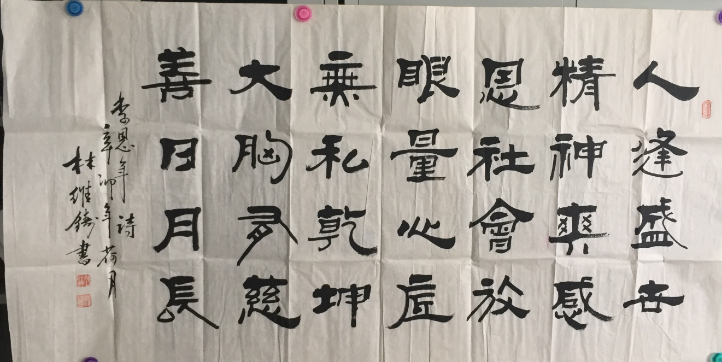 人逢盛世
精神爽感
恩社會放
眼量心底
無私乾坤
大胸慈
善日月長
李恩年詩
辛卯年荷月
林維書